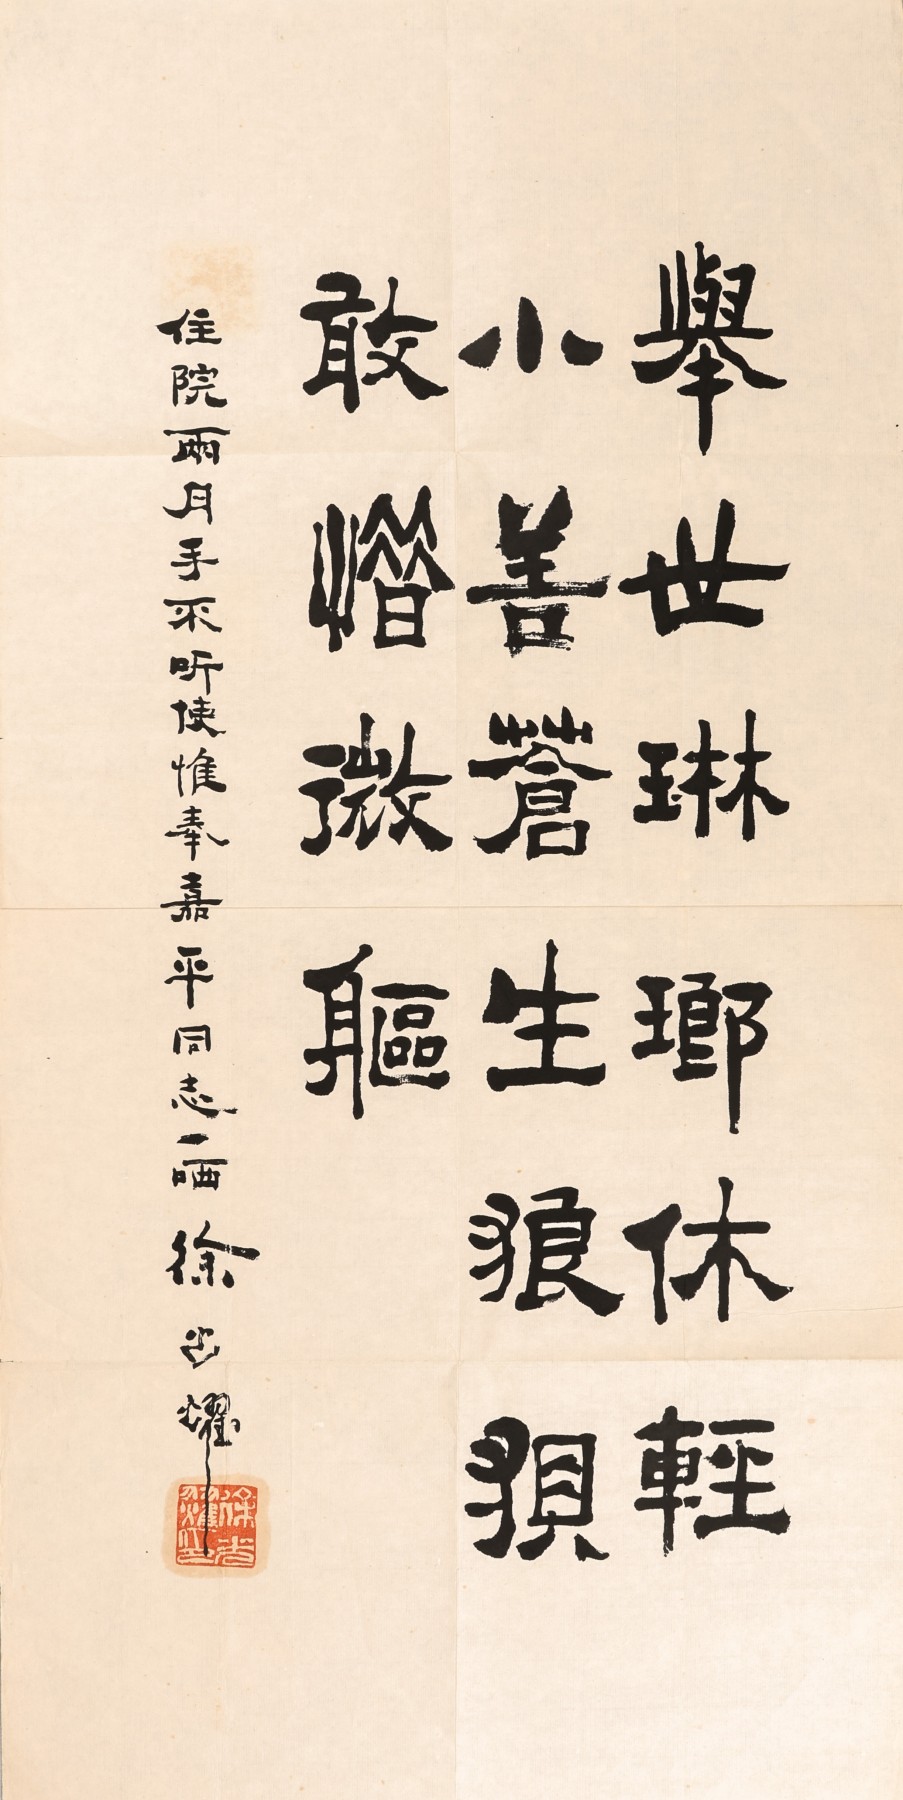 舉世琳瑯休輕
小善蒼生狼狽
敢惜微軀
住院兩月手不听使惟奉嘉平同志一哂 徐光耀
徐光耀印